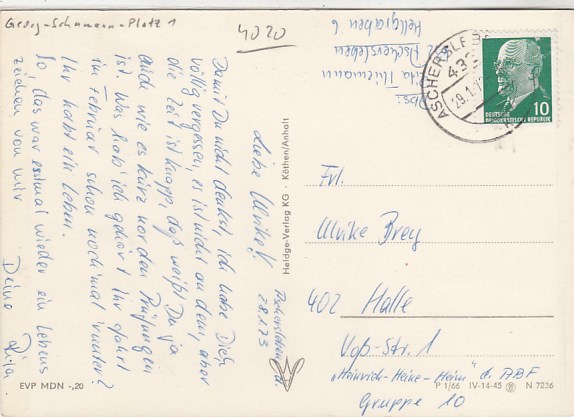 Georg-Schumann-Platz 1
4020
Hellgraben 6
Aschersleben
Thiemann
Abs.
ASCHERSLEBEN
29.1.
DEUTSCHE
DEMOKRATISCHE REPUBLIK
10
Aschersleben, d.
28.1.73
Liebe Ulrike!
Damit Du nicht denkst, ich habe Dich
völlig vergessen, es ist nicht an dem, aber
die Zeit ist knapp, das weißt Du ja
auch wie es kurz vor den Prüfungen
ist. Was hab' ich gehört Ihr fahrt
im Februar schon noch mal runter?
Ihr habt ein Leben.
So, das war erstmal wieder ein Lebens
zeichen von mir
Deine
Heldge-Verlag KG · Köthen/Anhalt
Frl.
Ulrike Brey
402 Halle
Voß-Str. 1
"Heinrich-Heine-Heim" d. ABF
Gruppe 10
EVP MDN -,20
P 1/66 IV-14-45 N 7256